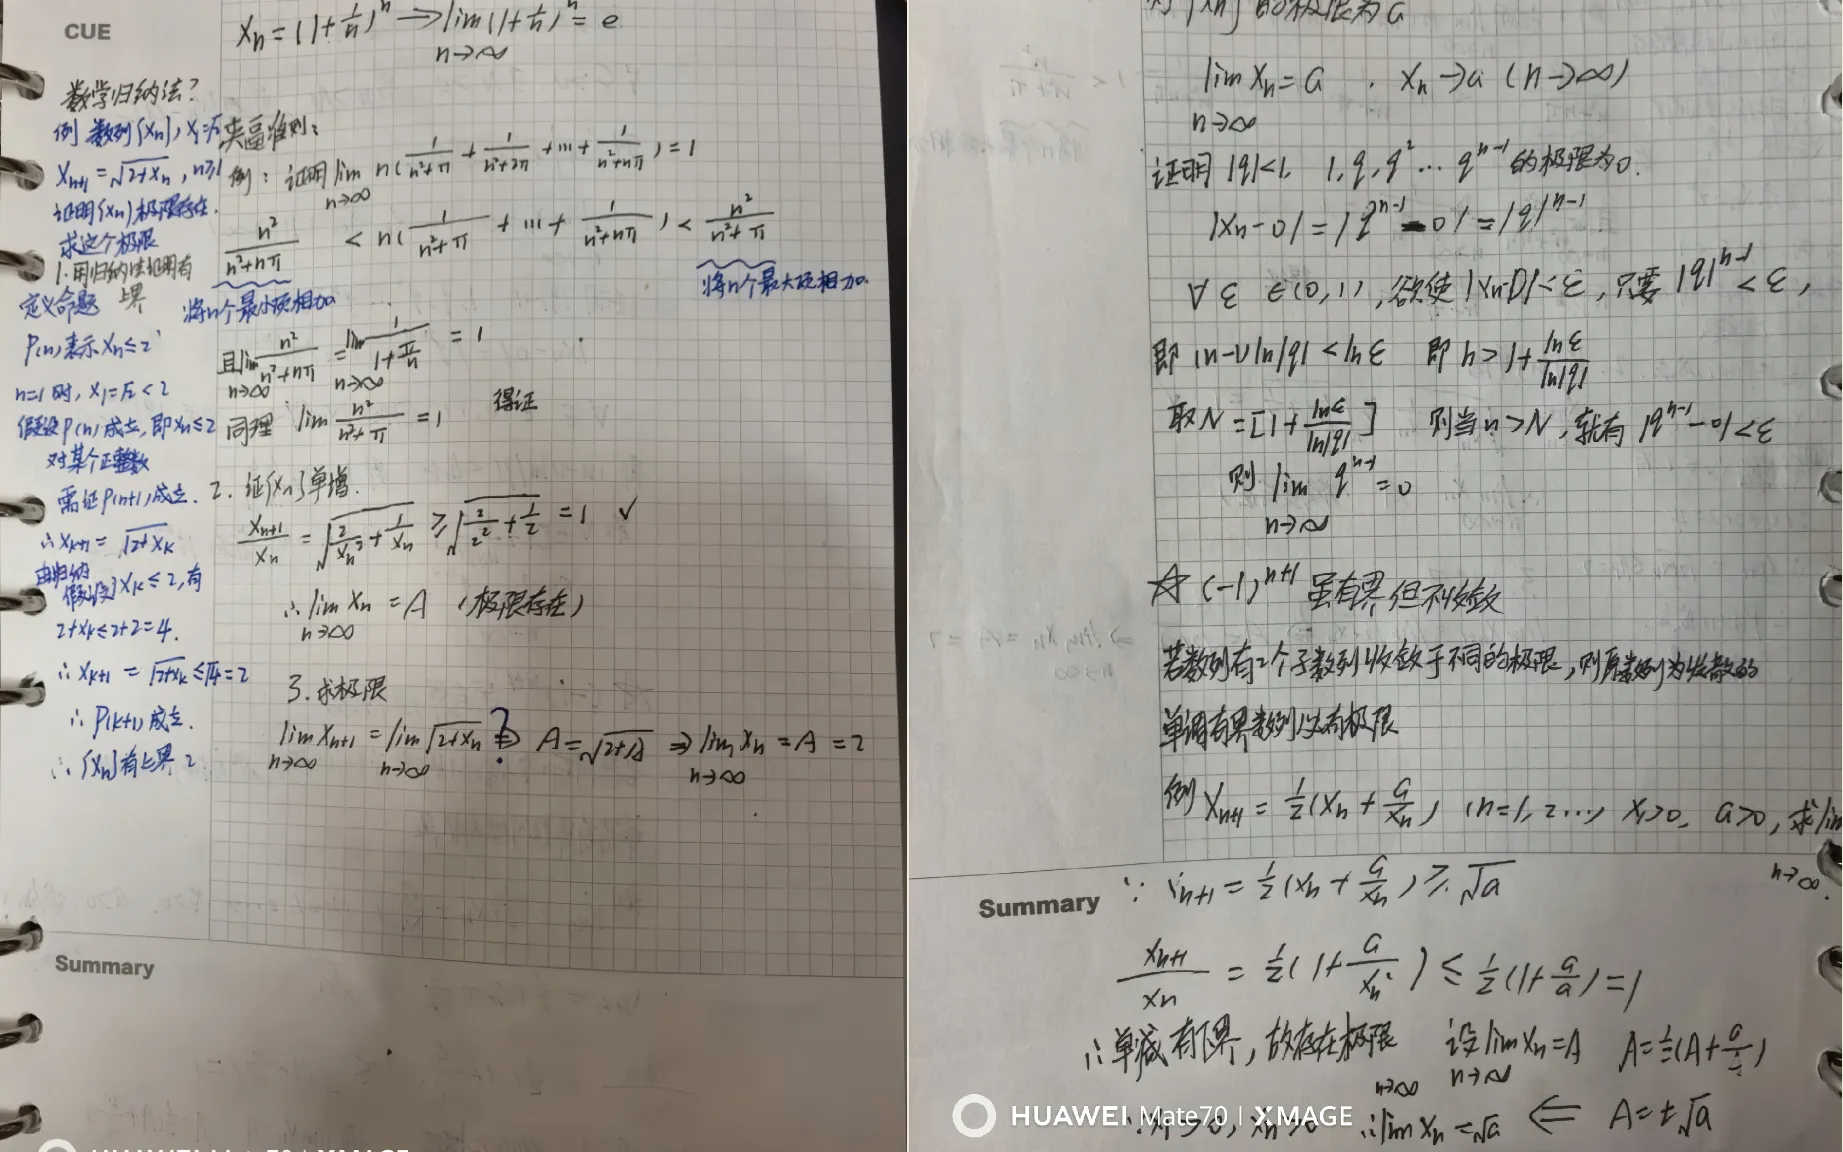 CUE
数学归纳法?
例 数列{xn}, x1=√2
xn+1 = √(2+xn), n≥1
证明{xn}极限存在.
求这个极限
1.用归纳法证明有
上界
定义命题
P(n)表示 xn≤2
n=1时, x1=√2<2
假设P(n)成立,即xn≤2
对某个正整数
需证P(n+1)成立.
∴xk+1 = √(2+xk)
由归纳
假设 xk≤2,有
2+xk≤2+2=4.
∴ xk+1 = √(2+xk) ≤√4=2
∴ P(k+1)成立.
∴ {xn}有上界 2
xn = (1+1/n)^n → lim n→∞ (1+1/n)^n = e
夹逼准则:
例: 证明 lim n→∞ n(1/(n²+π) + 1/(n²+2π) + ... + 1/(n²+nπ)) = 1
n²/(n²+nπ) < n(1/(n²+π) + ... + 1/(n²+nπ)) < n²/(n²+π)
将n个最小项相加 将n个最大项相加
且 lim n→∞ n²/(n²+nπ) = lim n→∞ 1/(1+π/n) = 1
同理 lim n²/(n²+π) = 1 得证
2. 证{xn}单增.
xn+1/xn = √(2/xn² + 1/xn) ≥ √(2/2² + 1/2) = 1 ✓
∴ lim n→∞ xn = A (极限存在)
3.求极限
lim n→∞ xn+1 = lim n→∞ √(2+xn) ⇒ ? A = √(2+A) ⇒ lim n→∞ xn = A = 2
Summary
{xn}的极限为a
lim n→∞ xn = a . xn→a (n→∞)
证明 |q|<1, 1, q, q² ... q^(n-1) 的极限为0.
|xn-0| = |q^(n-1) - 0| = |q|^(n-1)
∀ ε ∈(0,1), 欲使 |xn-0|<ε, 只要 |q|^(n-1) < ε,
即 (n-1)ln|q| < lnε 即 n > 1 + lnε/ln|q|
取 N = [1 + lnε/ln|q|] 则当 n>N, 就有 |q^(n-1) - 0|<ε
则 lim n→∞ q^(n-1) = 0
☆ (-1)^(n+1) 虽有界但不收敛
若数列有2个子数列收敛于不同的极限,则原数列为发散的
单调有界数列必有极限
例 xn+1 = 1/2(xn + a/xn) (n=1, 2 ...) x1>0, a>0, 求lim n→∞
Summary
∵ xn+1 = 1/2(xn + a/xn) ≥ √a
xn+1/xn = 1/2(1 + a/xn²) ≤ 1/2(1 + a/a) = 1
∴ 单减有下界, 故存在极限 设 lim n→∞ xn = A A = 1/2(A + a/A)
∵ x1>0, xn>0 ∴ lim n→∞ xn = √a ⇐ A = ±√a
HUAWEI Mate70 | XMAGE
HUAWEI Mate70 | XMAGE